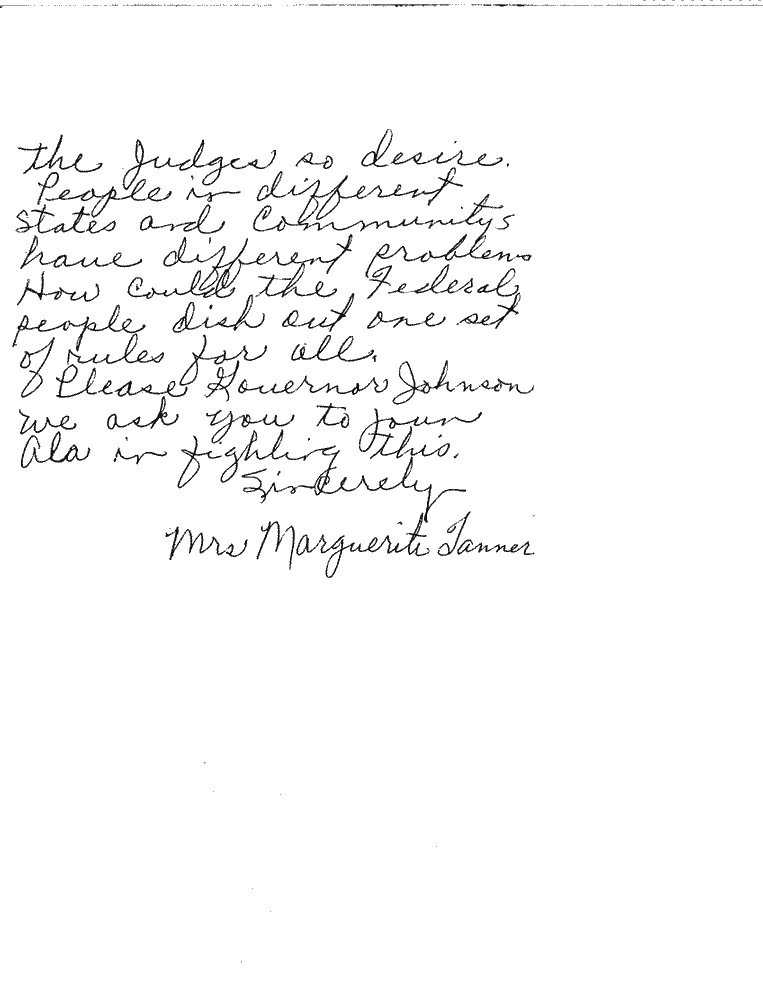 the Judges so desire.
People in different
States and Communitys
have different problems
How could the Federal
people dish out one set
of rules for all.
Please Governor Johnson
we ask you to joun
Ala in fighting this.
Sincerely
Mrs Marguerite Tanner